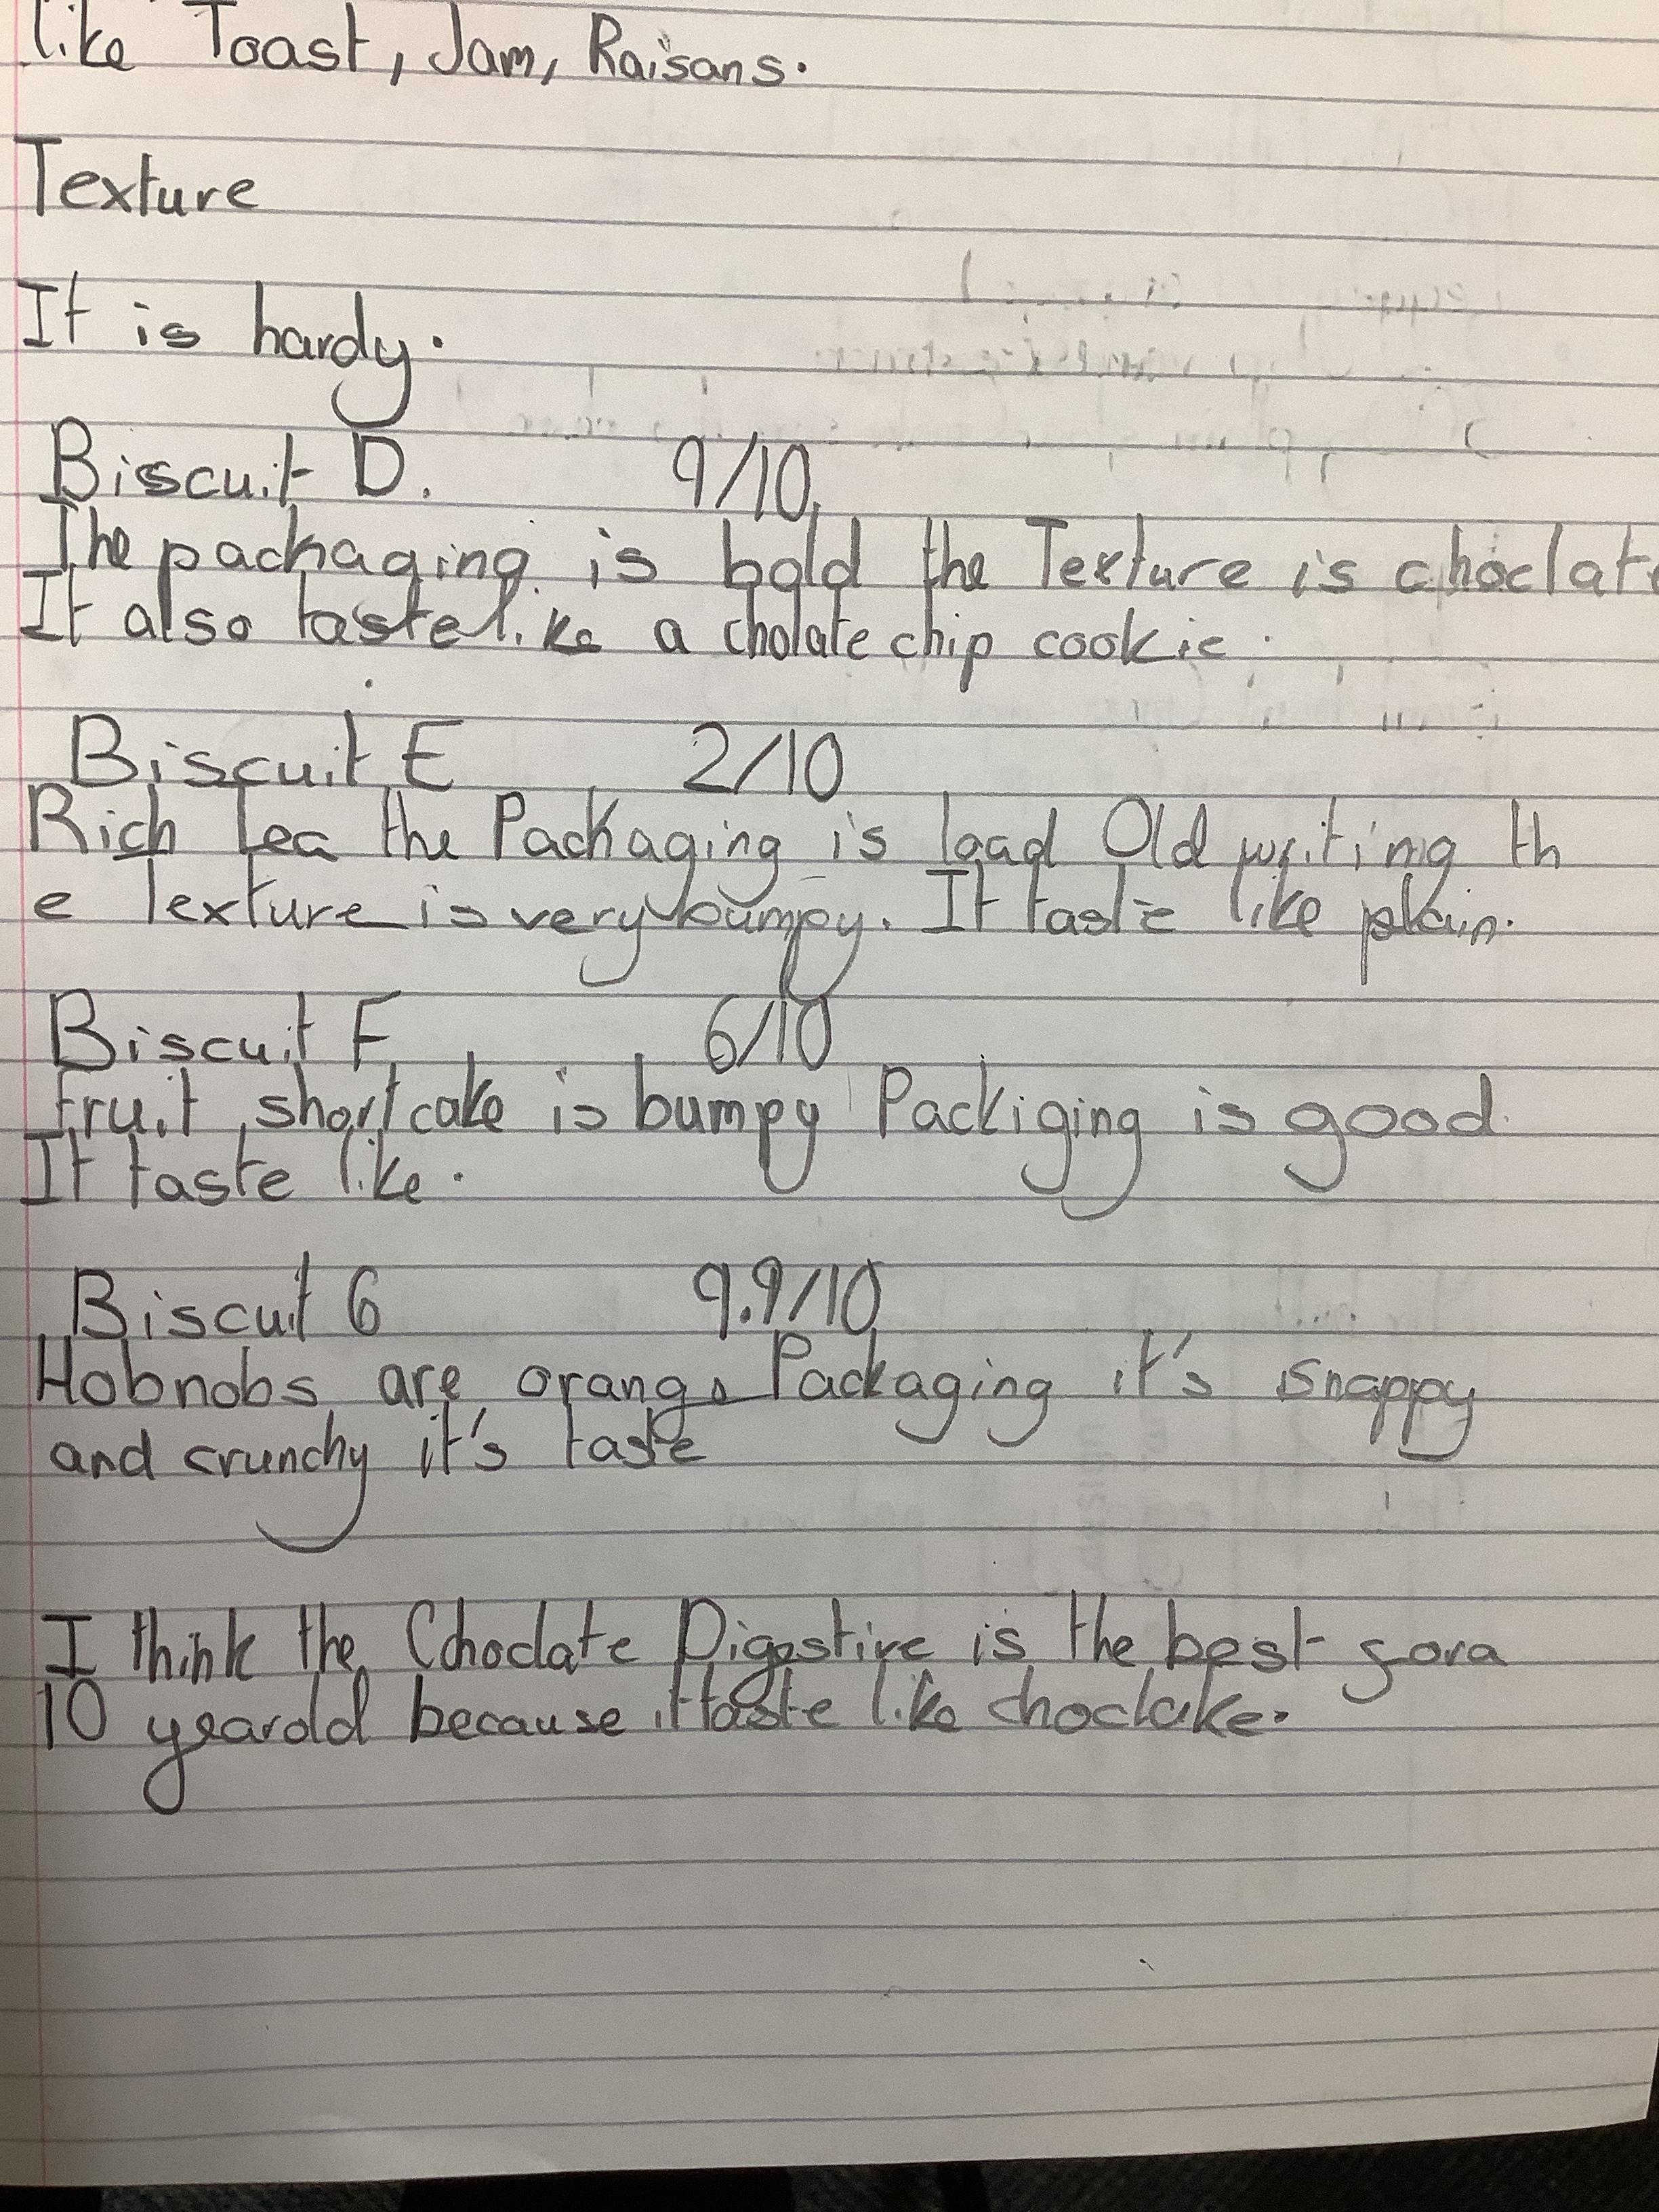 like Toast, Jam, Raisans.
Texture
It is hardy.
Biscuit D. 9/10.
The packaging is bold the Texture is choclate
It also taste like a cholate chip cookie.
Biscuit E 2/10
Rich Tea the Packaging is Old writing th
e Texture is very bumpy. It taste like plain.
Biscuit F 6/10
Fruit shortcake is bumpy Packiging is good
It taste like.
Biscuit G 9.9/10
Hobnobs are orange Packaging it's snappy
and crunchy it's taste
I think the Choclate Digestive is the best for a
10 year old because it taste like choclake.